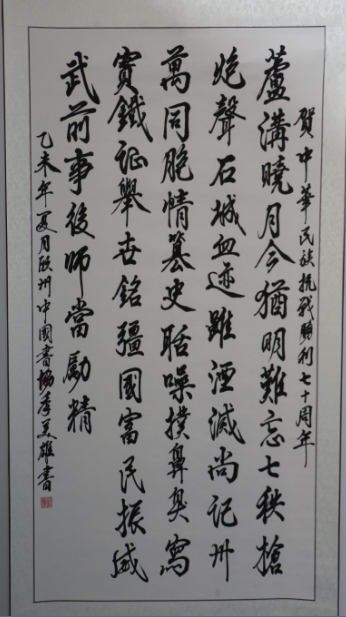 賀中華民族抗戰勝利七十周年
蘆溝曉月今猶明難忘七秩搶
炮聲石城血迹雖湮滅尚記卅
萬同胞情篡史聒噪撲鼻臭寫
實鐵証舉世銘疆國富民振威
武前事後師當勵精
乙未年夏月欧州中國書協李美雄書